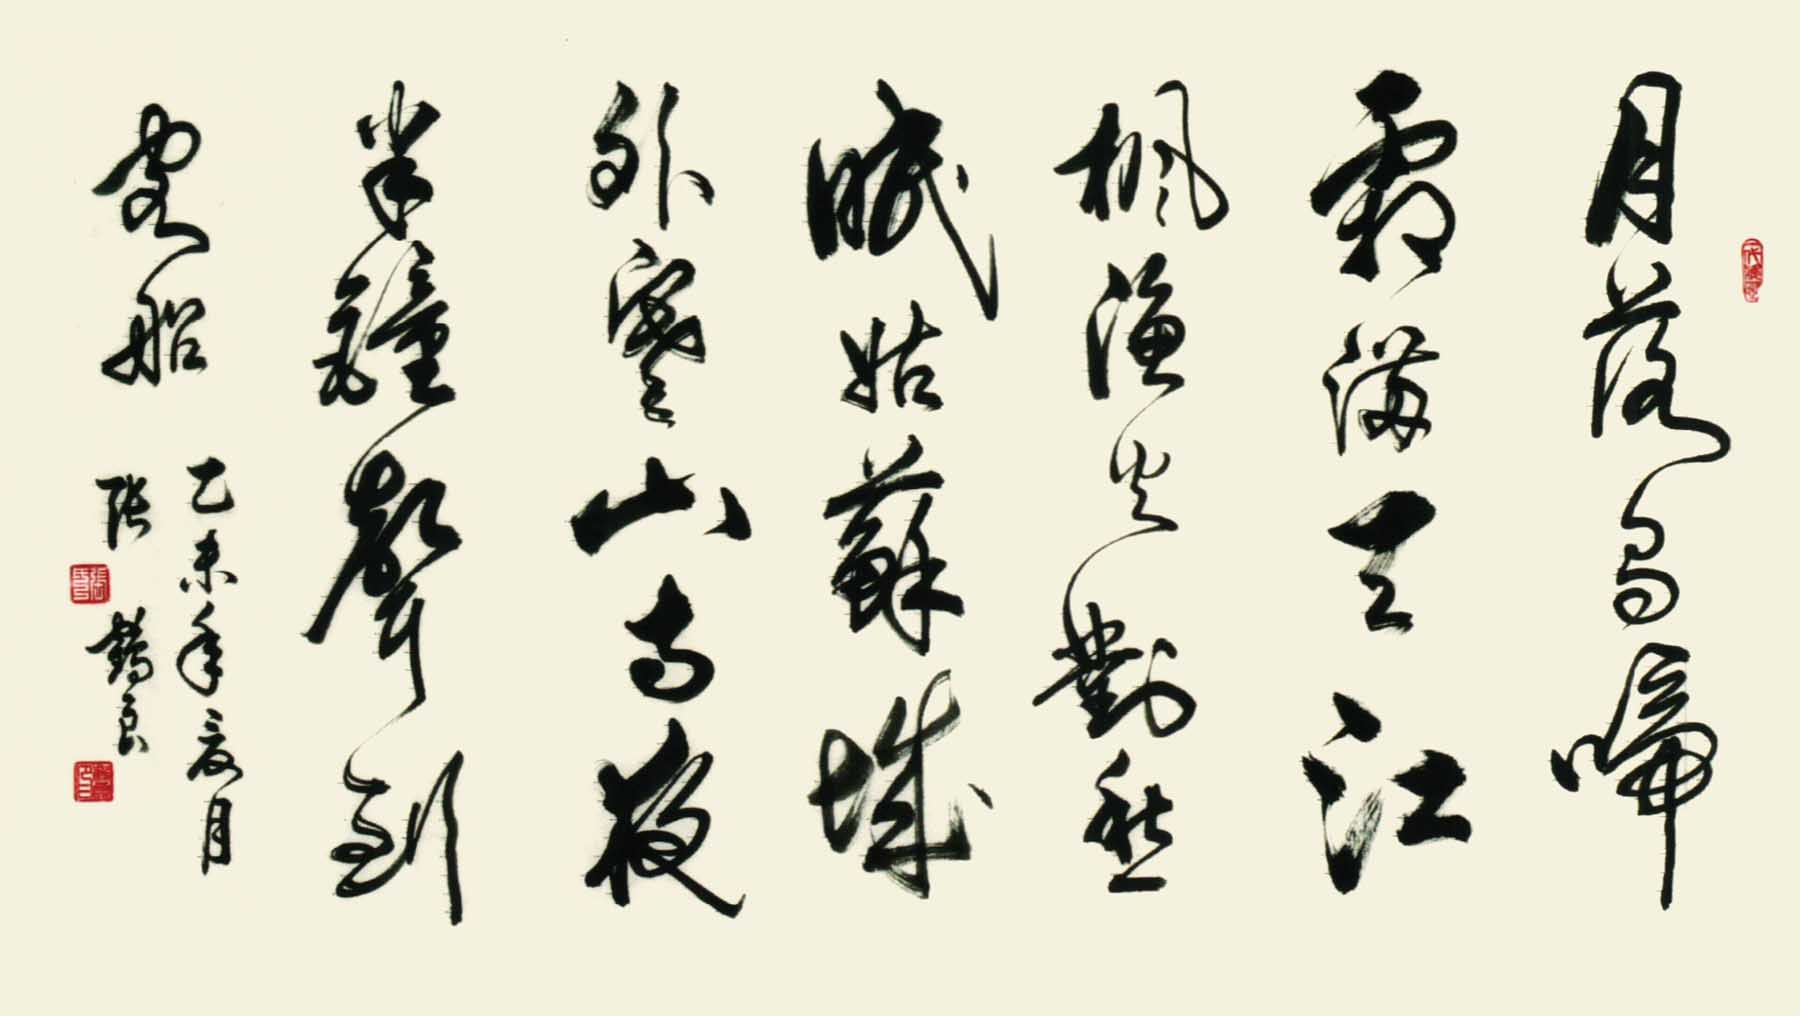 月落烏啼
霜滿天江
楓漁火對愁
眠姑蘇城
外寒山寺夜
半鐘聲到
客船
乙未年夏月
張鶴良